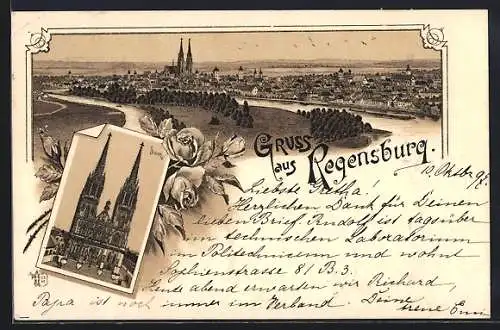 Gruss
aus Regensburg.
Dom.
10. Oktob 98.
Liebste Getha!
Herzlichen Dank für Deinen
lieben Brief. Rudolf ist tagsüber
im technischen Laboratorium
im Politechnicum und wohnt
Sophienstrasse 8/ B 3.
Heute abend erwarten wir Richard,
Papa ist noch immer im Verband. Deine